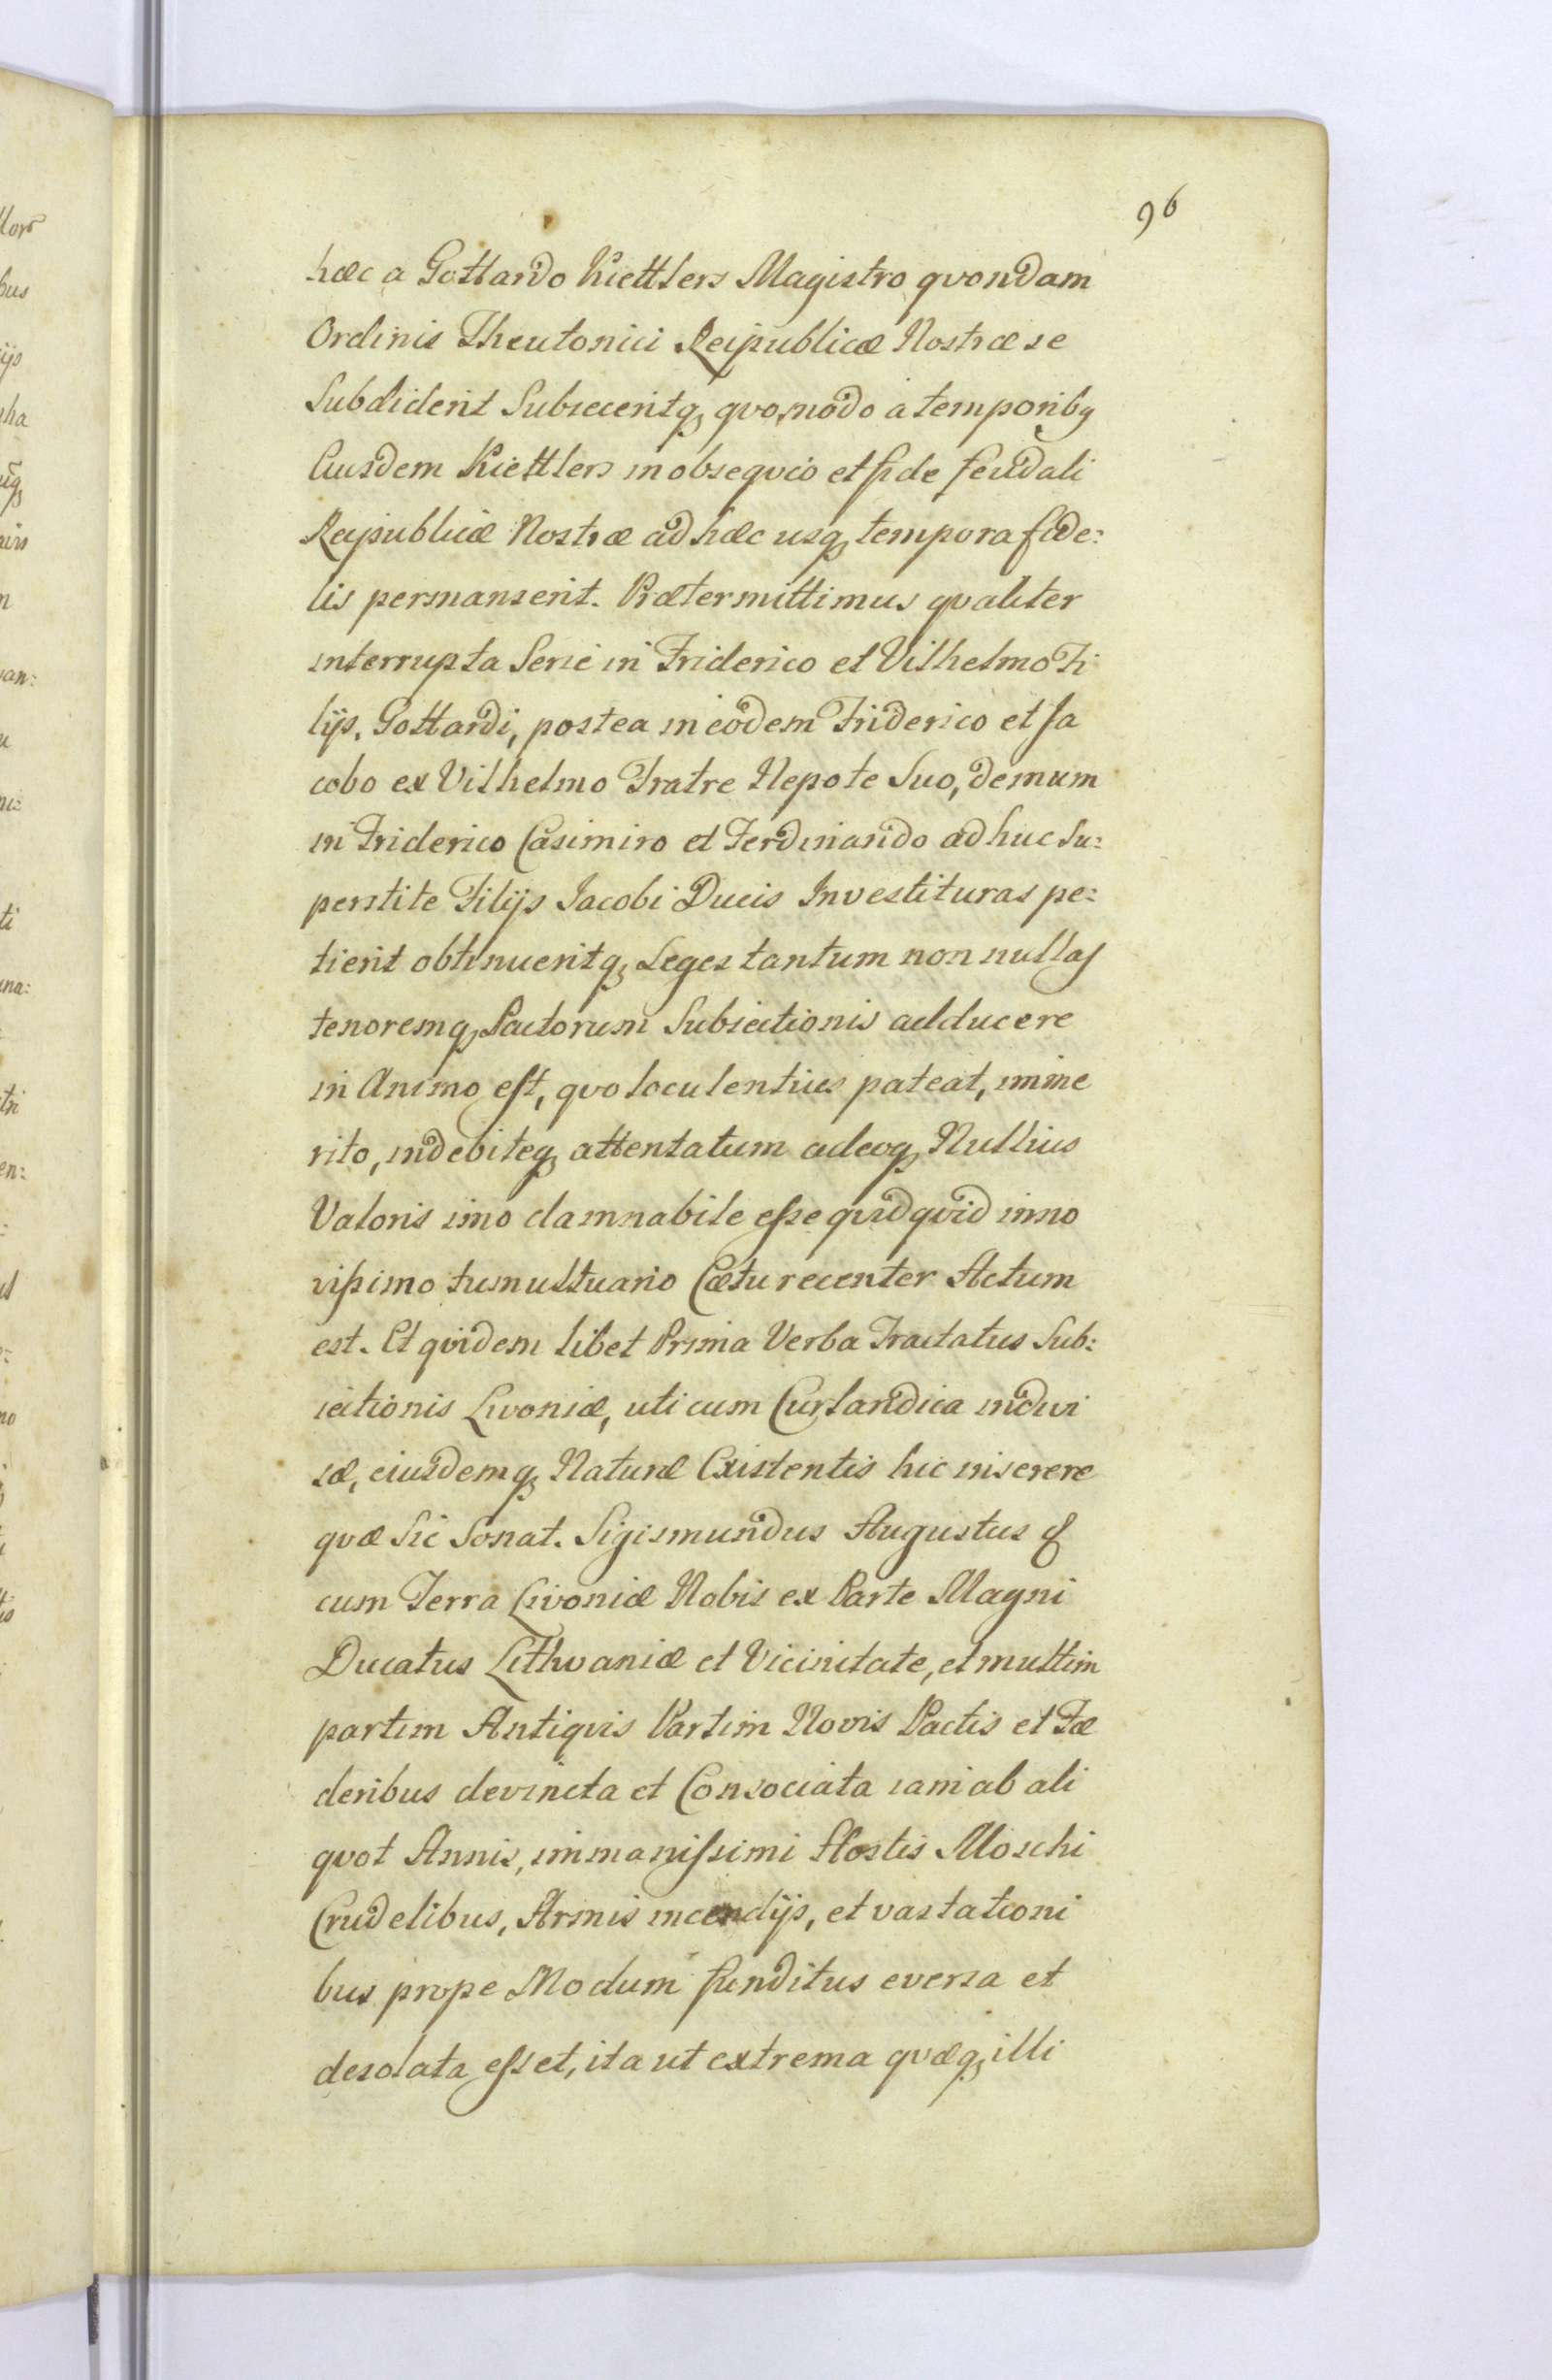 96
hæc a Gottardo Kiettlers Magistro qvondam
Ordinis Theutonici Reipublicæ Nostræ se
Subdiderit Subieceritq, qvomodo a temporibq
Eiusdem Kiettlers in obseqvio et fide feudali
Reipublicæ Nostræ ad hæc usq, tempora fide:
lis permanserit. Prætermittimus qvaliter
interrupta Serie in Friderico et Vilhelmo Fi
lijs, Gottardi, postea in eodem Friderico et Ja
cobo ex Vilhelmo Fratre Nepote Suo, demum
in Friderico Casimiro et Ferdinando adhuc Su:
perstite Filijs Jacobi Ducis Investituras pe:
tierit obtinueritq, Leges tantum non nullas
tenoremq, Pactorum Subiectionis adducere
in Animo est, qvo loculentius pateat, imme
rito, indebiteq, attentatum adeoq, Nullius
Valoris imo damnabile esse qvidqvid in no
vissimo tumultuario Cætu recenter Actum
est. Et qvidem libet Prima Verba Tractatus Sub:
iectionis Livoniæ, uti cum Curlandica indivi
sæ, eiusdemq, Naturæ Existentis hic inserere
qvæ Sic Sonat. Sigismundus Augustus &
cum Terra Livoniæ Nobis ex Parte Magni
Ducatus Lithvaniæ et Vicinitate, et multim
partim Antiqvis Partim Novis Pactis et Fæ
deribus devincta et Consociata iam ab ali
qvot Annis, immanissimi Hostis Moschi
Crudelibus, Armis incendijs, et vastationi
bus prope Modum funditus eversa et
desolata esset, ita ut extrema qvæq, illi